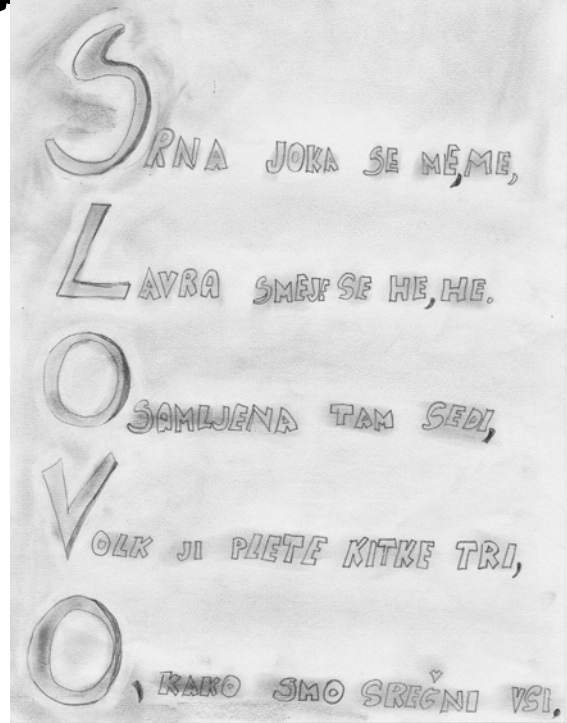 SRNA JOKA SE ME, ME,
LAVRA SMEJE SE HE, HE.
OSAMLJENA TAM SEDI,
VOLK JI PLETE KITKE TRI,
O, KAKO SMO SREČNI VSI.